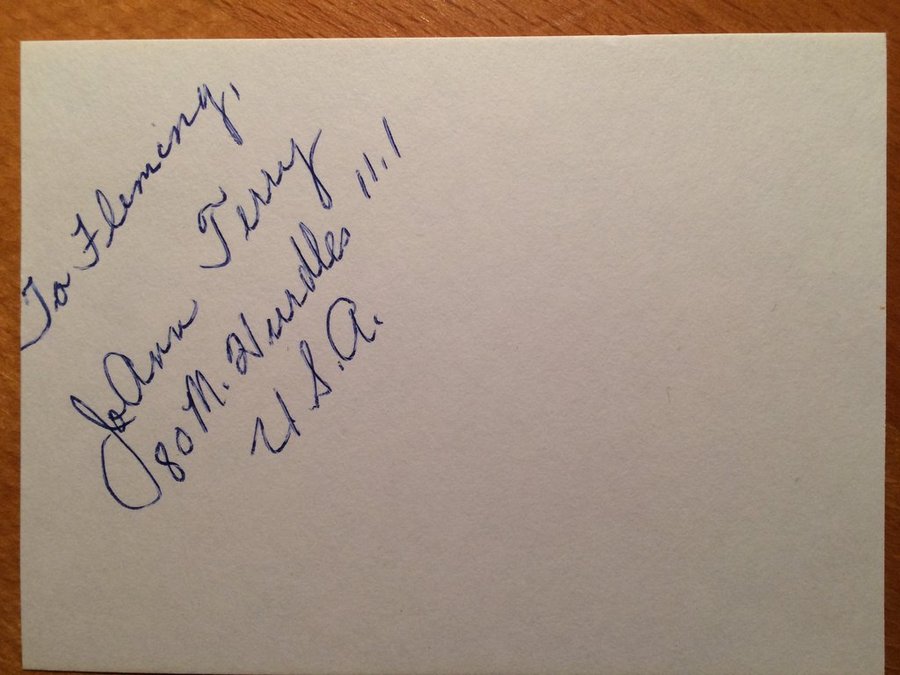 To Fleming,
JoAnn Terry
80 M. Hurdles 11.1
U.S.A.